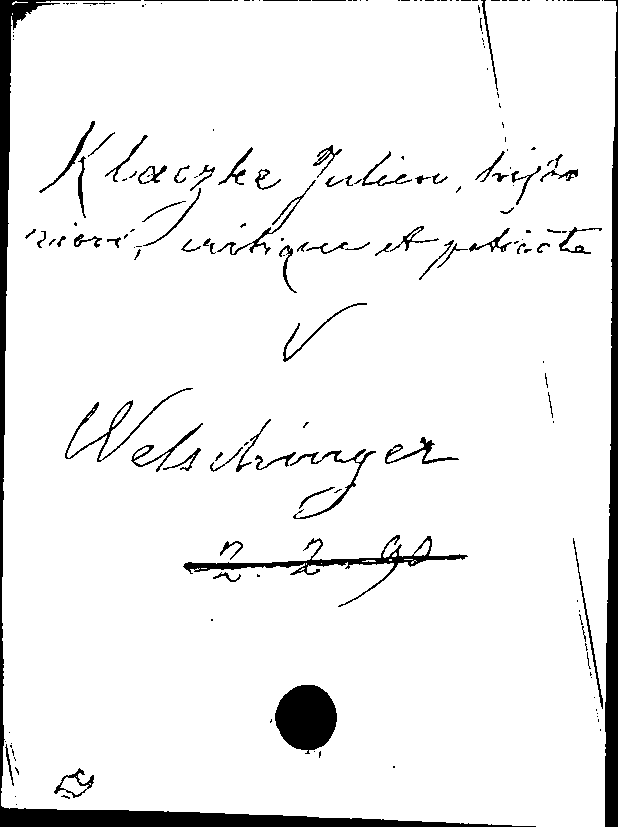 Klaczke Julien, histo
rien, critique et patriote
V
Welschinger
2. 2. 90